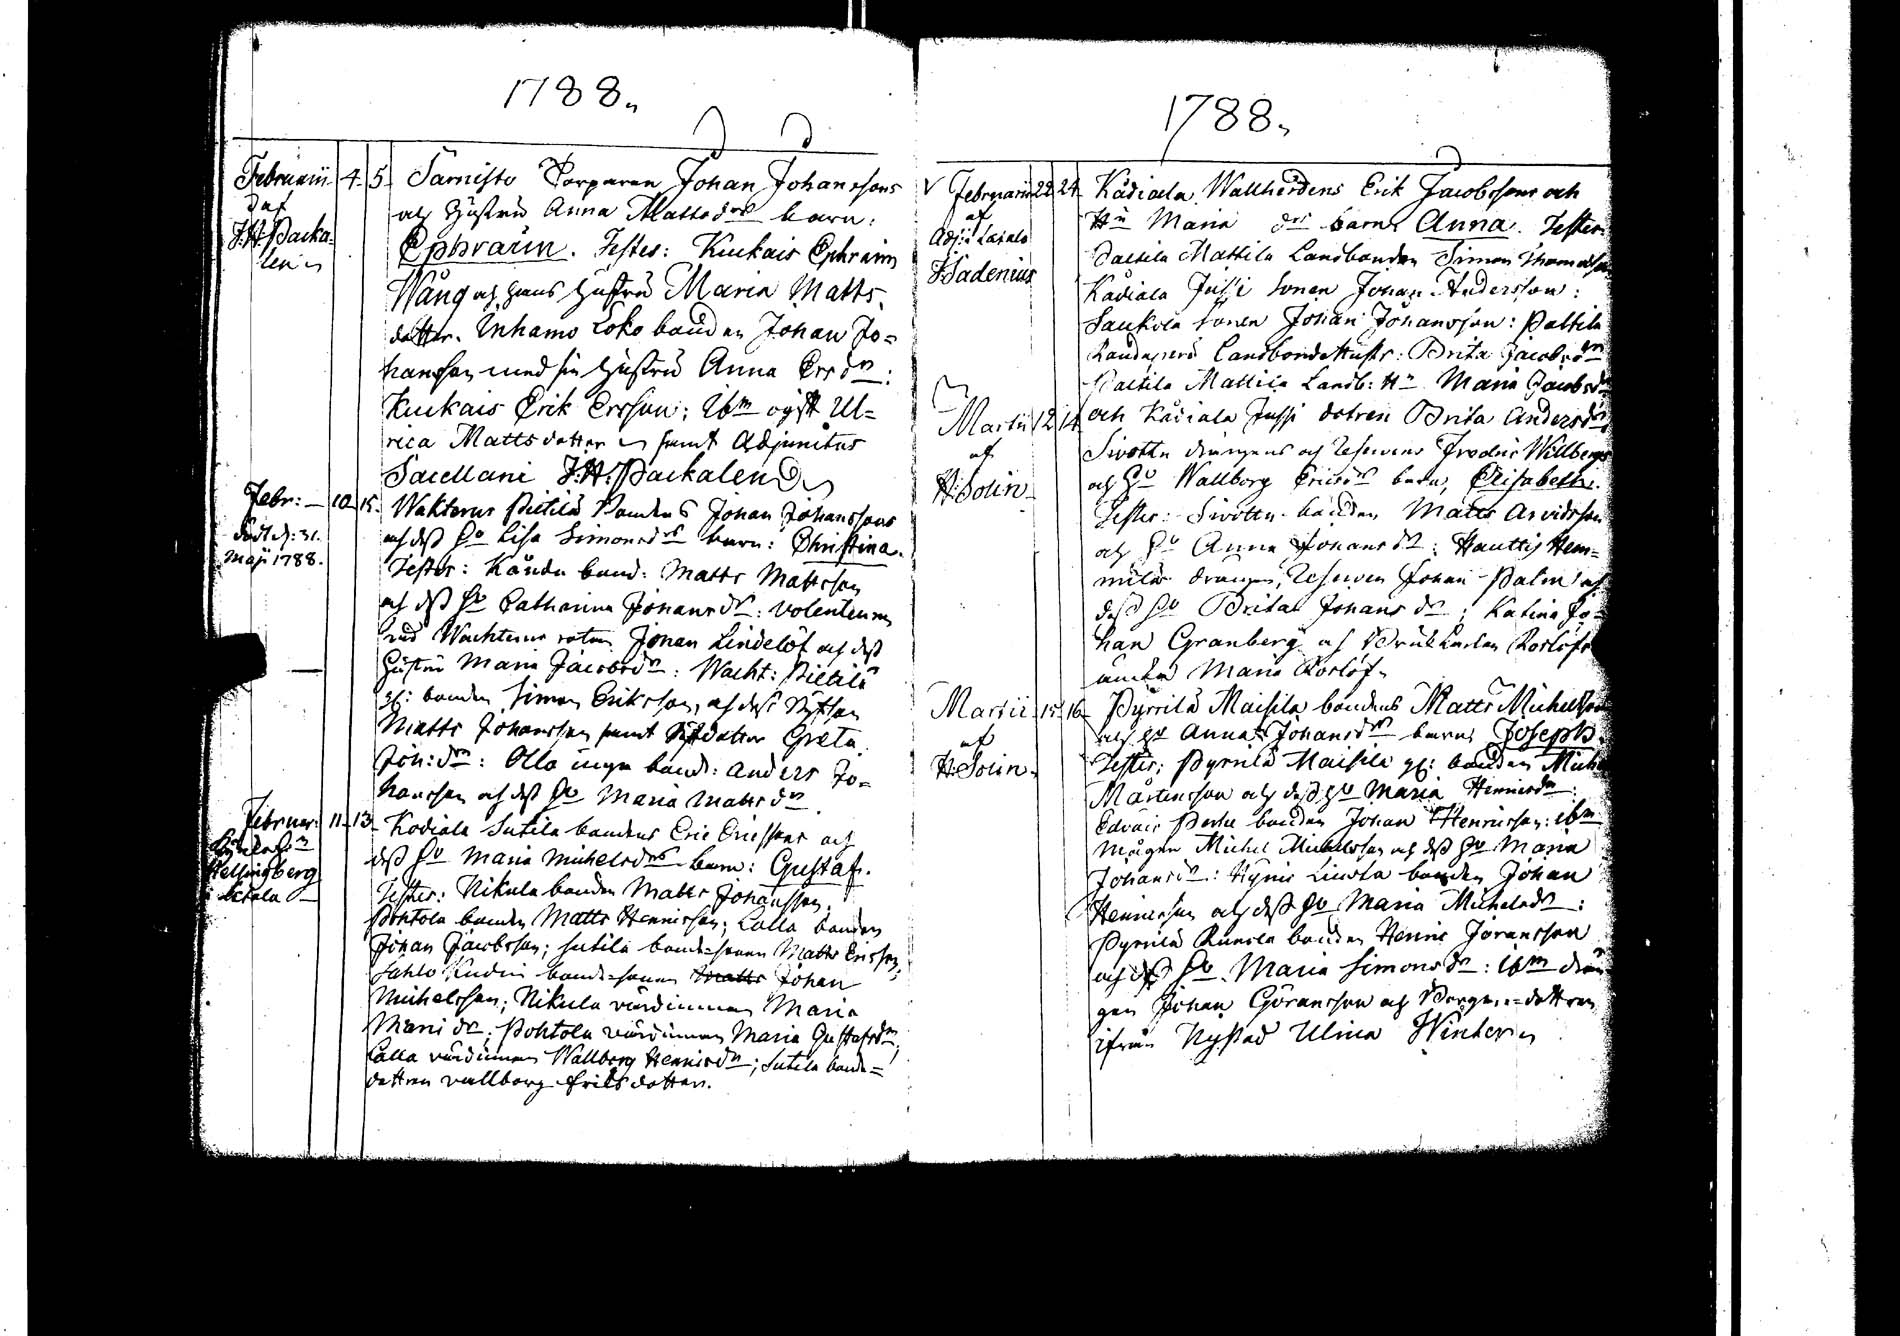 1788.
Februarii 4. 5. Sarnisto Torparen Johan Johanssons
af
J:H: Packa-
len
och Hustru Anna Mattsdrs barn:
Ephraim. Testes: Kukais Ephraim
Wång och hans hustru Maria Matts-
dotter. Inhamo Loko bonden Johan Jo-
hansson med sin hustru Anna Ersdr:
Kukais Erik Ersson; ibm ogift Ul-
rica Mattsdotter samt Adjunctus
Sacellani J:H: Packalen
Febr: 10 15. Wakterus Pietilä bondens Johan Johanssons
död d: 31.
Maji 1788.
och dess Hu Lisa Simonsdrs barn: Christina.
Testes: Kåndu bond: Matts Mattsson
och dess Hu Catharina Johansdr: Volonteuren
vid Wachterus roten Johan Lindelöf och dess
Hustru Maria Jacobsdr: Wacht: Pietilä
gl: bonden Simon Eriksson, och dess
Matts Johansson samt dotter Greta
Joh:dr: Ollo bond: Anders Jo-
hansson och dess Hu Maria Mattsdr
Februar: 11 13. Kodiala Sutila bondens Eric Ericssons och
Hellsingberg
Letala
dess Hu Maria Michelsdrs barn: Gustaf.
Testes: Nikula bonden Matts Johansson.
Pohtola bonden Matts Henricsson; Lalla bonden
Johan Jacobsson; Sutila bonde-sonen Matts Ericsson,
Sahlo bonde-sonen Matts Johan
Michelsson; Nikula värdinnan Maria
dr; Pohtola värdinnan Maria Gustafsdr;
Lalla värdinnan Wallborg Henricsdr; Sutila bonde-
dottren Wallborg Ericsdotter.
1788.
Februarii 22 24. Kådiala Wallherdens Erik Jacobssons och
af
Adj: i Letala
Sadenius
Hu Maria drs barn Anna. Testes:
Paltila Mattila Landbonden Simon Thomasson
Kådiala Jussi sonen Johan Andersson:
Saukola sonen Johan Johansson: Paltila
Landbonde Hustr: Brita Jacobsdr
Paltila Mattila Landb: Hu Maria Jacobsdr
och Kådiala Jussi dotren Brita Andersdr
Martii 12 14
af
H: Solin
Sivottu drängens och Reserven Fredric Willbergs
och Hu Wallborg Ericsdrs barn, Elisabeth.
Testes: Sivottu bonden Matts Arvidsson
och Hu Anna Johansdr; Hauttis Hem-
drängen, Reserven Johan Palin och
dess Hu Brita Johansdr; Katina Jo-
han Granberg och Rosløfs
Maria Roslöf.
Martii 15 16. Pyrrilä Maisila bondens Matts Michelssons
af
H: Solin
och Hu Anna Johansdrs barn; Joseph.
Testes: Pyrrilä Maisila gl: bonden Michel
Mårtensson och dess Hu Maria Henricsdr:
Edväis bonden Johan Henricsson: ibm
mågen Michel Michelsson och dess Hu Maria
Johansdr: bonden Johan
Henricsson och dess Hu Maria Michelsdr:
Pyrrilä bonden Henric Joransson
och dess Hu Maria Simonsdr: ibm drän-
gen Johan Göransson och Borgare-dottren
ifrån Nystad Ulrica Winter